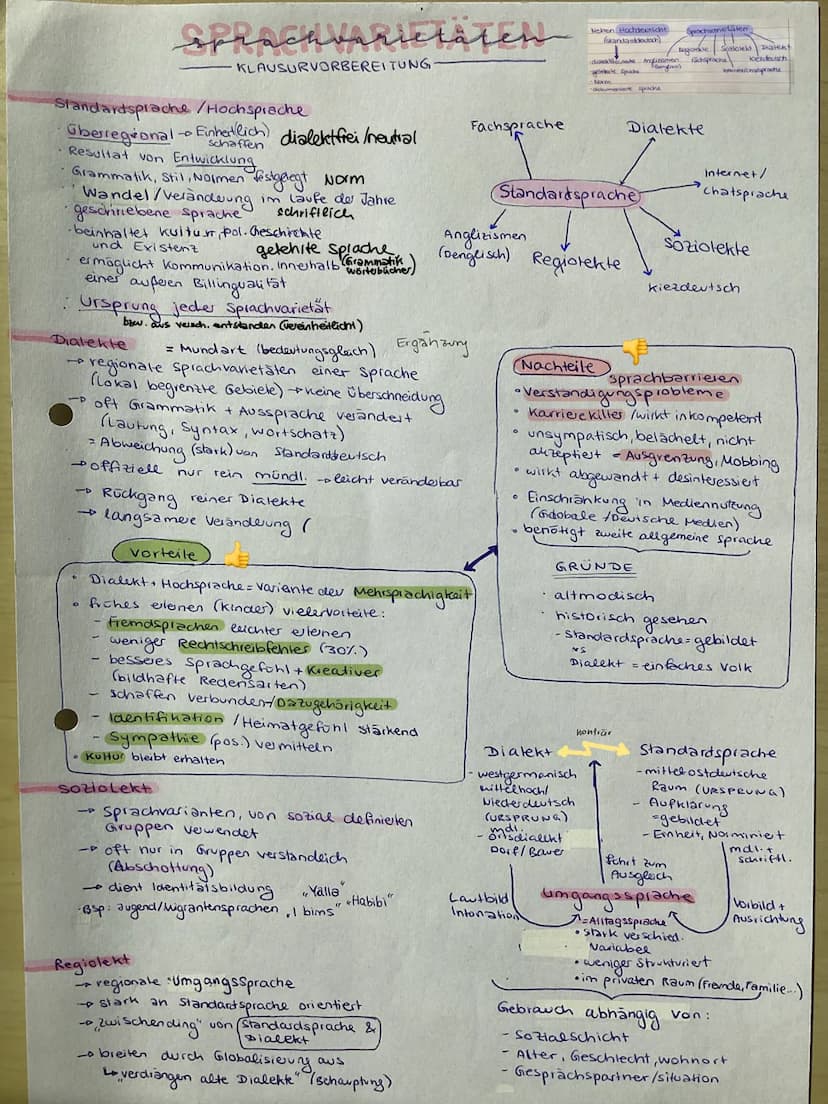 SPRACHVARIETÄTEN
sprachvarietäten
KLAUSURVORBEREITUNG
Neben Hochdeutsch
(Standarddeutsch)
Sprachvarietäten
Regiolekte Soziolekt Dialekt
Anglizismen Fachsprache Kiezdeutsch
gelehrte Sprache
Norm
Standardsprache/Hochsprache
· Überregional → Einheit(lich) schaffen dialektfrei/neutral
· Resultat von Entwicklung
· Grammatik, Stil, Normen festgelegt Norm
· Wandel/Veränderung im Laufe der Jahre
· geschriebene Sprache schriftlich
· beinhaltet Kultur, pol. Geschichte
und Existenz gelehrte Sprache
(Grammatik
Wörterbücher)
· ermöglicht Kommunikation innerhalb
einer äußeren Billingualität
: Ursprung jeder Sprachvarietät
bzw. aus versch. entstanden (vereinheitlicht)
Fachsprache
Dialekte
Internet/
Chatsprache
Standardsprache
Anglizismen
(Denglisch)
Regiolekte
Soziolekte
Kiezdeutsch
Dialekte = Mundart (bedeutungsgleich) Ergänzung
→ regionale Sprachvarietäten einer Sprache
(lokal begrenzte Gebiete) → keine Überschneidung
→ oft Grammatik + Aussprache verändert
(Lautung, Syntax, Wortschatz)
= Abweichung (stark) von Standarddeutsch
→ offiziell nur rein mündl. → leicht veränderbar
→ Rückgang reiner Dialekte
→ langsamere Veränderung (
Nachteile 👎
Sprachbarrieren
• Verständigungsprobleme
• Karrierekiller/wirkt inkompetent
• unsympatisch, belächelt, nicht
akzeptiert = Ausgrenzung, Mobbing
• wirkt abgewandt + desinteressiert
• Einschränkung in Mediennutzung
(Globale/Deutsche Medien)
• benötigt zweite allgemeine Sprache
GRÜNDE
· altmodisch
· historisch gesehen
- Standardsprache = gebildet
vs
Dialekt = einfaches Volk
Vorteile 👍
• Dialekt + Hochsprache = Variante der Mehrsprachigkeit
• frühes erlenen (Kinder) viele Vorteile:
- Fremdsprachen leichter erlenen
- weniger Rechtschreibfehler (30%)
- besseres Sprachgefühl + Kreativer
(bildhafte Redensarten)
- schaffen Verbunden-/Dazugehörigkeit
- Identifikation/Heimatgefühl stärkend
- Sympathie (pos.) vermitteln
• Kultur bleibt erhalten
Soziolekt
→ Sprachvarianten, von sozial definierten
Gruppen verwendet
→ oft nur in Gruppen verständlich
(Abschottung)
→ dient Identitätsbildung „Yalla“
· Bsp: Jugend/Migrantensprachen „I bims“ „Habibi“
Regiolekt
→ regionale Umgangssprache
→ stark an Standardsprache orientiert
→ „zwischending“ von Standardsprache &
Dialekt
→ breiten durch Globalisierung aus
↳ „verdrängen alte Dialekte“ (Behauptung)
Dialekt konträr Standardsprache
- westgermanisch
mittelhoch/
Niederdeutsch
(URSPRUNG)
mdl.
- Ortsdialekt
Dorf/Bauer
- mittelostdeutsche
Raum (URSPRUNG)
- Aufklärung
=gebildet
- Einheit, Norminiert
mdl. +
schriftl.
führt zum
Ausgleich
Lautbild
Intonation
Umgangssprache
Vorbild +
Ausrichtung
=Alltagssprache
• stark verschied.
Variabel
• weniger strukturiert
• im privaten Raum (Freunde, Familie...)
Gebrauch abhängig von:
- Sozialschicht
- Alter, Geschlecht, Wohnort
- Gesprächspartner/situation